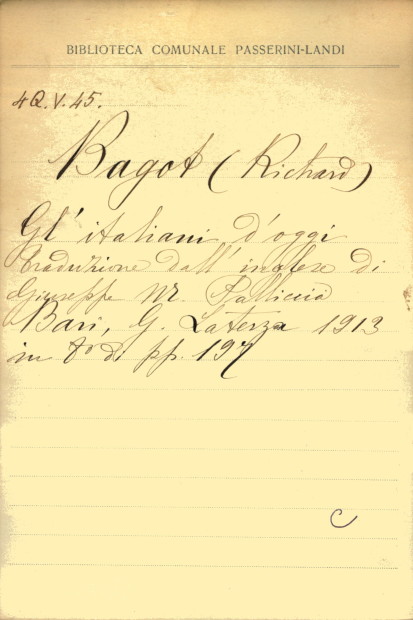 BIBLIOTECA COMUNALE PASSERINI-LANDI
4Q.V.45.
Bagot (Richard)
Gl' italiani d'oggi
traduzione dall' inglese di
Giuseppe M. Palliccia
Bari, G. Laterza 1913
in 8º di pp. 197
C